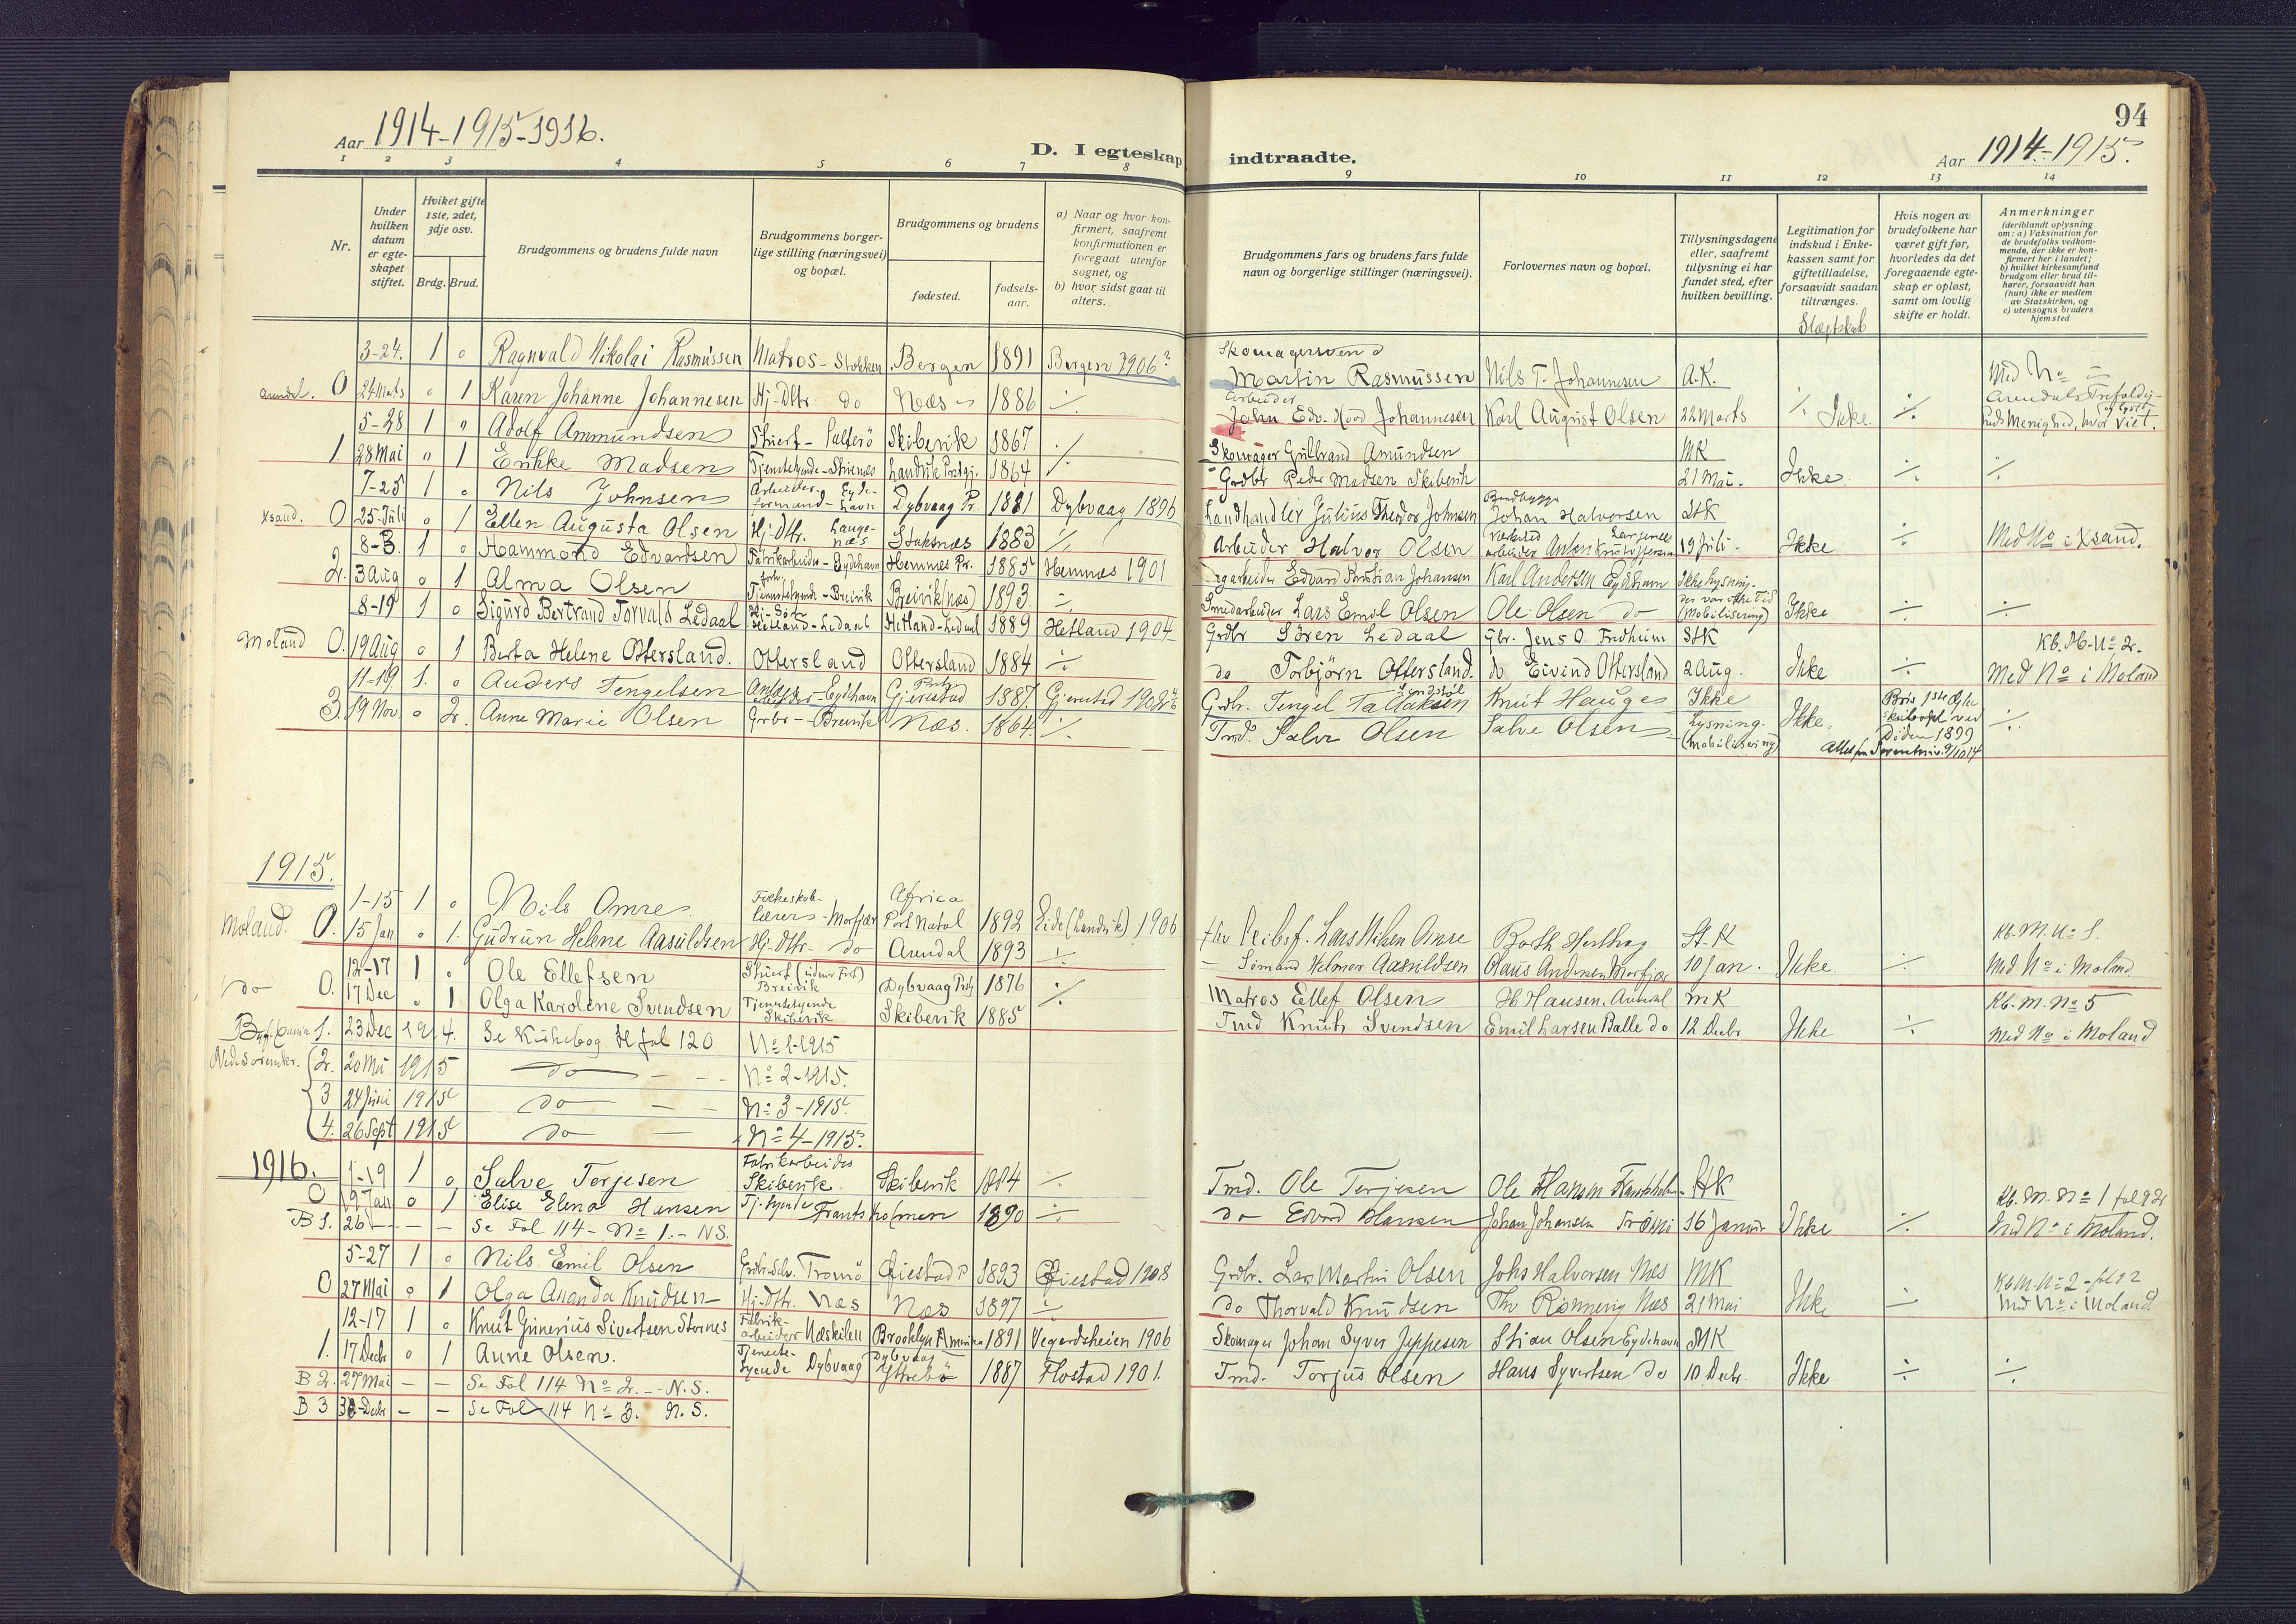 94
Aar 1914-1915-1916.
D. I egteskap indtraadte.
Aar 1914-1915.
1 2 3 4 5 6 7 8 9 10 11 12 13 14
Nr.
Under hvilken datum er egteskapet stiftet.
Hviket gifte 1ste, 2det, 3dje osv.
Brdg. Brud.
Brudgommens og brudens fulde navn
Brudgommens borgerlige stilling (næringsvei) og bopæl.
Brudgommens og brudens
fødested.
fødselsaar.
a) Naar og hvor konfirmert, saafremt konfirmationen er foregaat utenfor sognet, og
b) hvor sidst gaat til alters.
Brudgommens fars og brudens fars fulde navn og borgerlige stillinger (næringsvei).
Forlovernes navn og bopæl.
Tillysningsdagene eller, saafremt tillysning ei har fundet sted, efter hvilken bevilling.
Legitimation for indskud i Enkekassen samt for giftetilladelse, forsaavidt saadan tiltrænges.
Slegtskab
Hvis nogen av brudefolkene har været gift før, hvorledes da det foregaaende egteskap er opløst, samt om lovlig skifte er holdt.
Anmerkninger (deriblandt oplysning om: a) Vaksination for de brudefolks vedkommende, der ikke er konfirmert her i landet; b) hvilket kirkesamfund brudgom eller brud tilhører, forsaavidt han (hun) ikke er medlem av Statskirken, og c) utensogns bruders hjemsted
3-24. 1 o Ragnvald Nikolai Rasmussen Matros - Stokken Bergen 1891 Bergen 1906? Martin Rasmussen Nils T. Johannesen A.K. Med No
Arendal. 0 24 Marts o 1 Karen Johanne Johannesen Hj-Dtr. do Næs 1886 ÷ Arbeider John Edv. Johannesen Karl August Olsen 22 Marts ÷ Ikke. ÷ Menighed, hvor viet.
5-28 1 o Adolf Ammundsen Stuert - Skiberik 1867 ÷ Skomager Gulbrand Amundsen MK
1. 28 Mai o 1 Erikke Madsen Tjenestepige 1864 ÷ Grdbr Peder Madsen Skiberik 21 Mai. Ikke. ÷ ÷
7-25 1 o Nils Johnsen Arbeider formand Eydehavn Dybvaag Pr. 1881 Dybvaag 1896 Landhandler Julius Theodor Johnsen Johan Halvorsen StK
Xsand. 0 25-Juli o 1 Ellen Augusta Olsen Hj-Dtr. Langenæs 1883 ÷ Arbeider Halvor Olsen Anton Kristoffersen 19 Juli Ikke ÷ Med No i Xsand.
8-3. 1 o Hammond Edvardsen Fabrikarbeider - Eydehavn Hemnes Pr. 1885 Hemnes 1901 Edvard Kristian Johansen Karl Andersen Eydehavn Ikke Lysning.
2. 3 Aug o 1 Alma Olsen Breivik Breivik (Næs) 1893 ÷ Smedarbeider Lars Emil Olsen Ole Olsen do (Mobilisering) Ikke ÷ ÷
8-19 1 o Sigurd Bertrand Torvald Ledaal Hetland - Ledaal Hetland - Ledaal 1889 Hetland 1904 Grdbr Sören Ledaal Gbr. Jens O. Fredheim StK Kb. M. No 2.
Moland 0. 19 Aug o 1 Berta Helene Ottersland. Ottersland Ottersland 1884 ÷ do Torbjörn Ottersland. do Eivind Ottersland 2 Aug. Ikke ÷ Med No i Moland
11-19 1. o Anders Tengelsen Eydehavn Gjerestad 1887 Gjerestad Grdbr. Tengel Knut Hauge Ikke
3. 19 Nov o 2. Anne Marie Olsen Grdbr - Breivik Næs. 1864 ÷ Tmd. Salve Olsen Salve Olsen Lysning. (Mobilisering) Ikke. Døden 1899 ÷
1915.
1-15 1 o Nils Omre Folkeskolelærer - Morfjær Africa Port Natal 1892 Eide (Landvik) 1906 Lars Nilsen Omre St. K Kb. M. No 1.
Moland. 0. 15 Jan o 1. Gudrun Helene Aasuldsen Hj-Dtr - do Arendal 1893 ÷ Sömand Helmer Aasuldsen Klaus Andersen Morfjær 10 Jan. Ikke. ÷ Med No i Moland
12-17 1 o Ole Ellefsen Stuert Breivik Dybvaag Prstg 1876 ÷ Matros Ellef Olsen H Hansen. Arendal MK Kb. M. No 5
do 0. 17 Dec o 1 Olga Karoline Svendsen Tjenestepige Skiberik Skiberik 1885 Tmd Knut Svendsen Emil Larsen Balle do 12 Decbr Ikke ÷ Med No i Moland
1. 23 Dec 1914. Se Kirkebog fol 120 No 1-1915
2. 20 Mai 1915 do No 2-1915.
3 24 Juni 1915 do No 3-1915.
4. 26 Sept 1915 do No 4-1915.
1916. 1-19 1 o Salve Terjesen Fabrikarbeider Skiberik. Skiberik 1884 ÷ Tmd. Ole Terjesen Ole Hansen StK Kb. M. No 1 fol 92
0 19 Jan o 1 Elise Elena Hansen Frantsholmen 1890 ÷ do Edvard Hansen Johan Johansen Trömö 16 Januar Ikke ÷ Med No i Moland.
B 1. 26 - - - Se Fol 114 - No 1. - NS.
5-27 1 o Nils Emil Olsen Tromö 1893 1908 Grdbr. Lars Martin Olsen Johs Halvorsen Næs MK Kb M. No 2 - fol 92
0 27 Mai o 1 Olga Ananda Knudsen Hj-Dtr. Næs Næs 1897 ÷ do Thorvald Knudsen Thv Rönnevig Næs 21 Mai Ikke ÷ Med No i Moland.
12-17 1 o Knut Gunerius Sivertsen Stornes Fabrikarbeider Næskilen Brooklyn America 1891 Vegardsheien 1906 Skomager Johan Syver Jeppesen Stian Olsen Eydehavn MK
1. 17 Decbr o 1 Anne Olsen. Tjenestesyende Dybvaag Dybvaag Yttrebö 1887 Flostad 1901. Tmd. Torjus Olsen Hans Syvertsen do 10 Decbr. Ikke ÷ ÷
B 2. 27 Mai - - Se Fol 114 No 2. - N.S.
B 3 Decbr - - Se Fol 114 No 3. N.S.